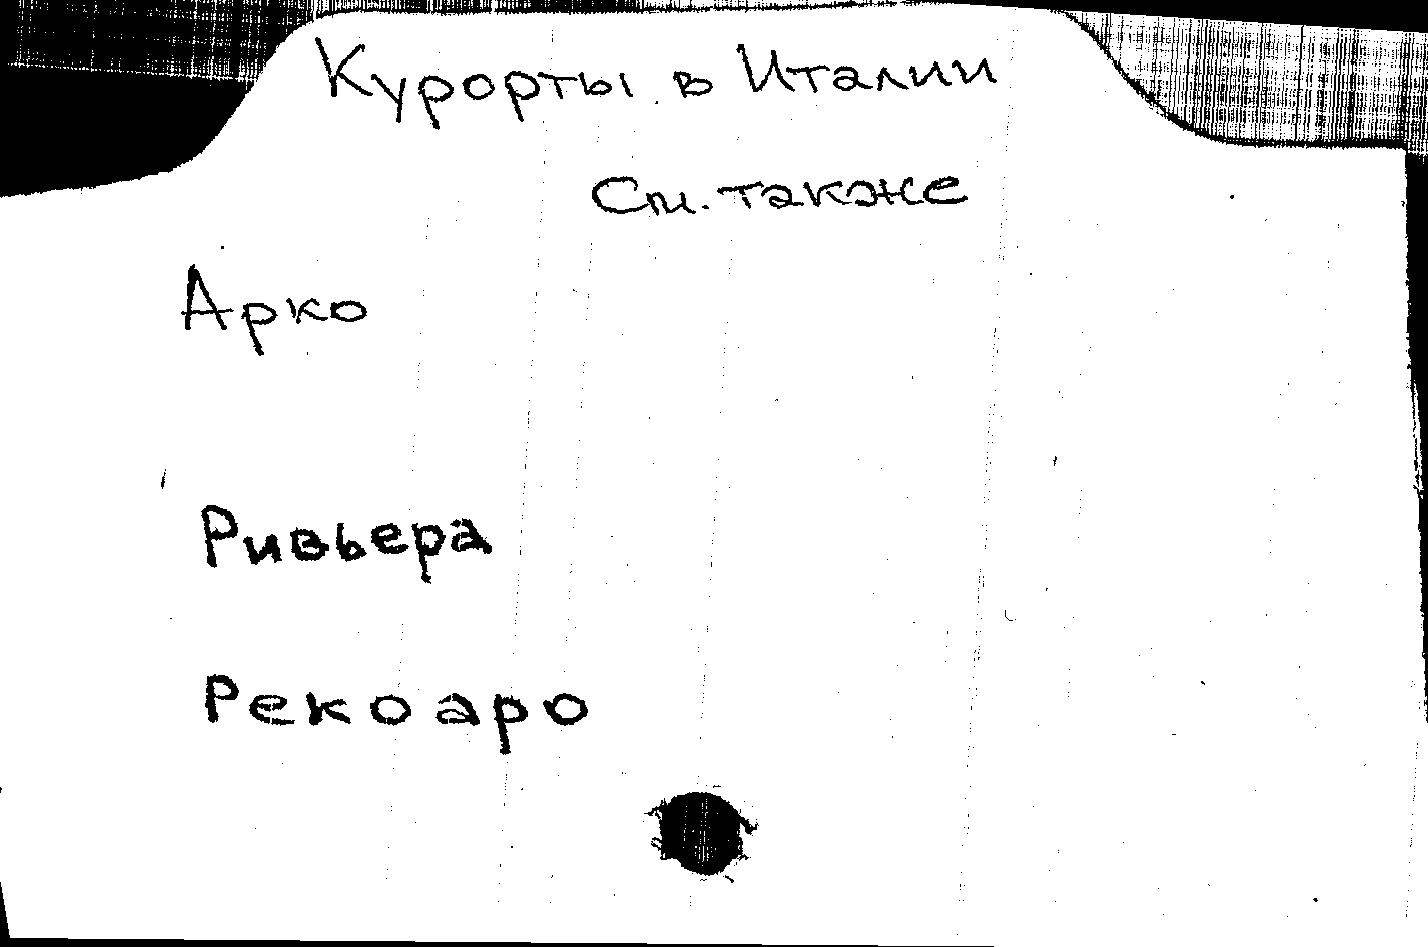 Курорты в Италии
См. также
Арко
Ривьера
Рекоаро